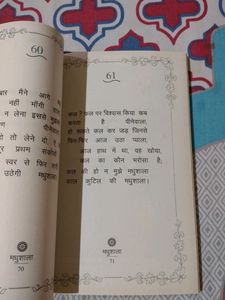 60
बार मैंने आगे
नहीं माँगी
न लेना इससे
पीनेवाला,
हो तो लेने दो, ऐ
प्रथम
स्वर से फिर
उठेगी मधुशाला
मधुशाला
70
61
कल? कल पर विश्वास किया कब
करता है पीनेवाला,
हो सकते कल कर जड़ जिनसे
फिर-फिर आज उठा प्याला,
आज हाथ में था, वह खोया,
कल का कौन भरोसा है;
कल की हो न मुझे मधुशाला
काल कुटिल की मधुशाला।
मधुशाला
71